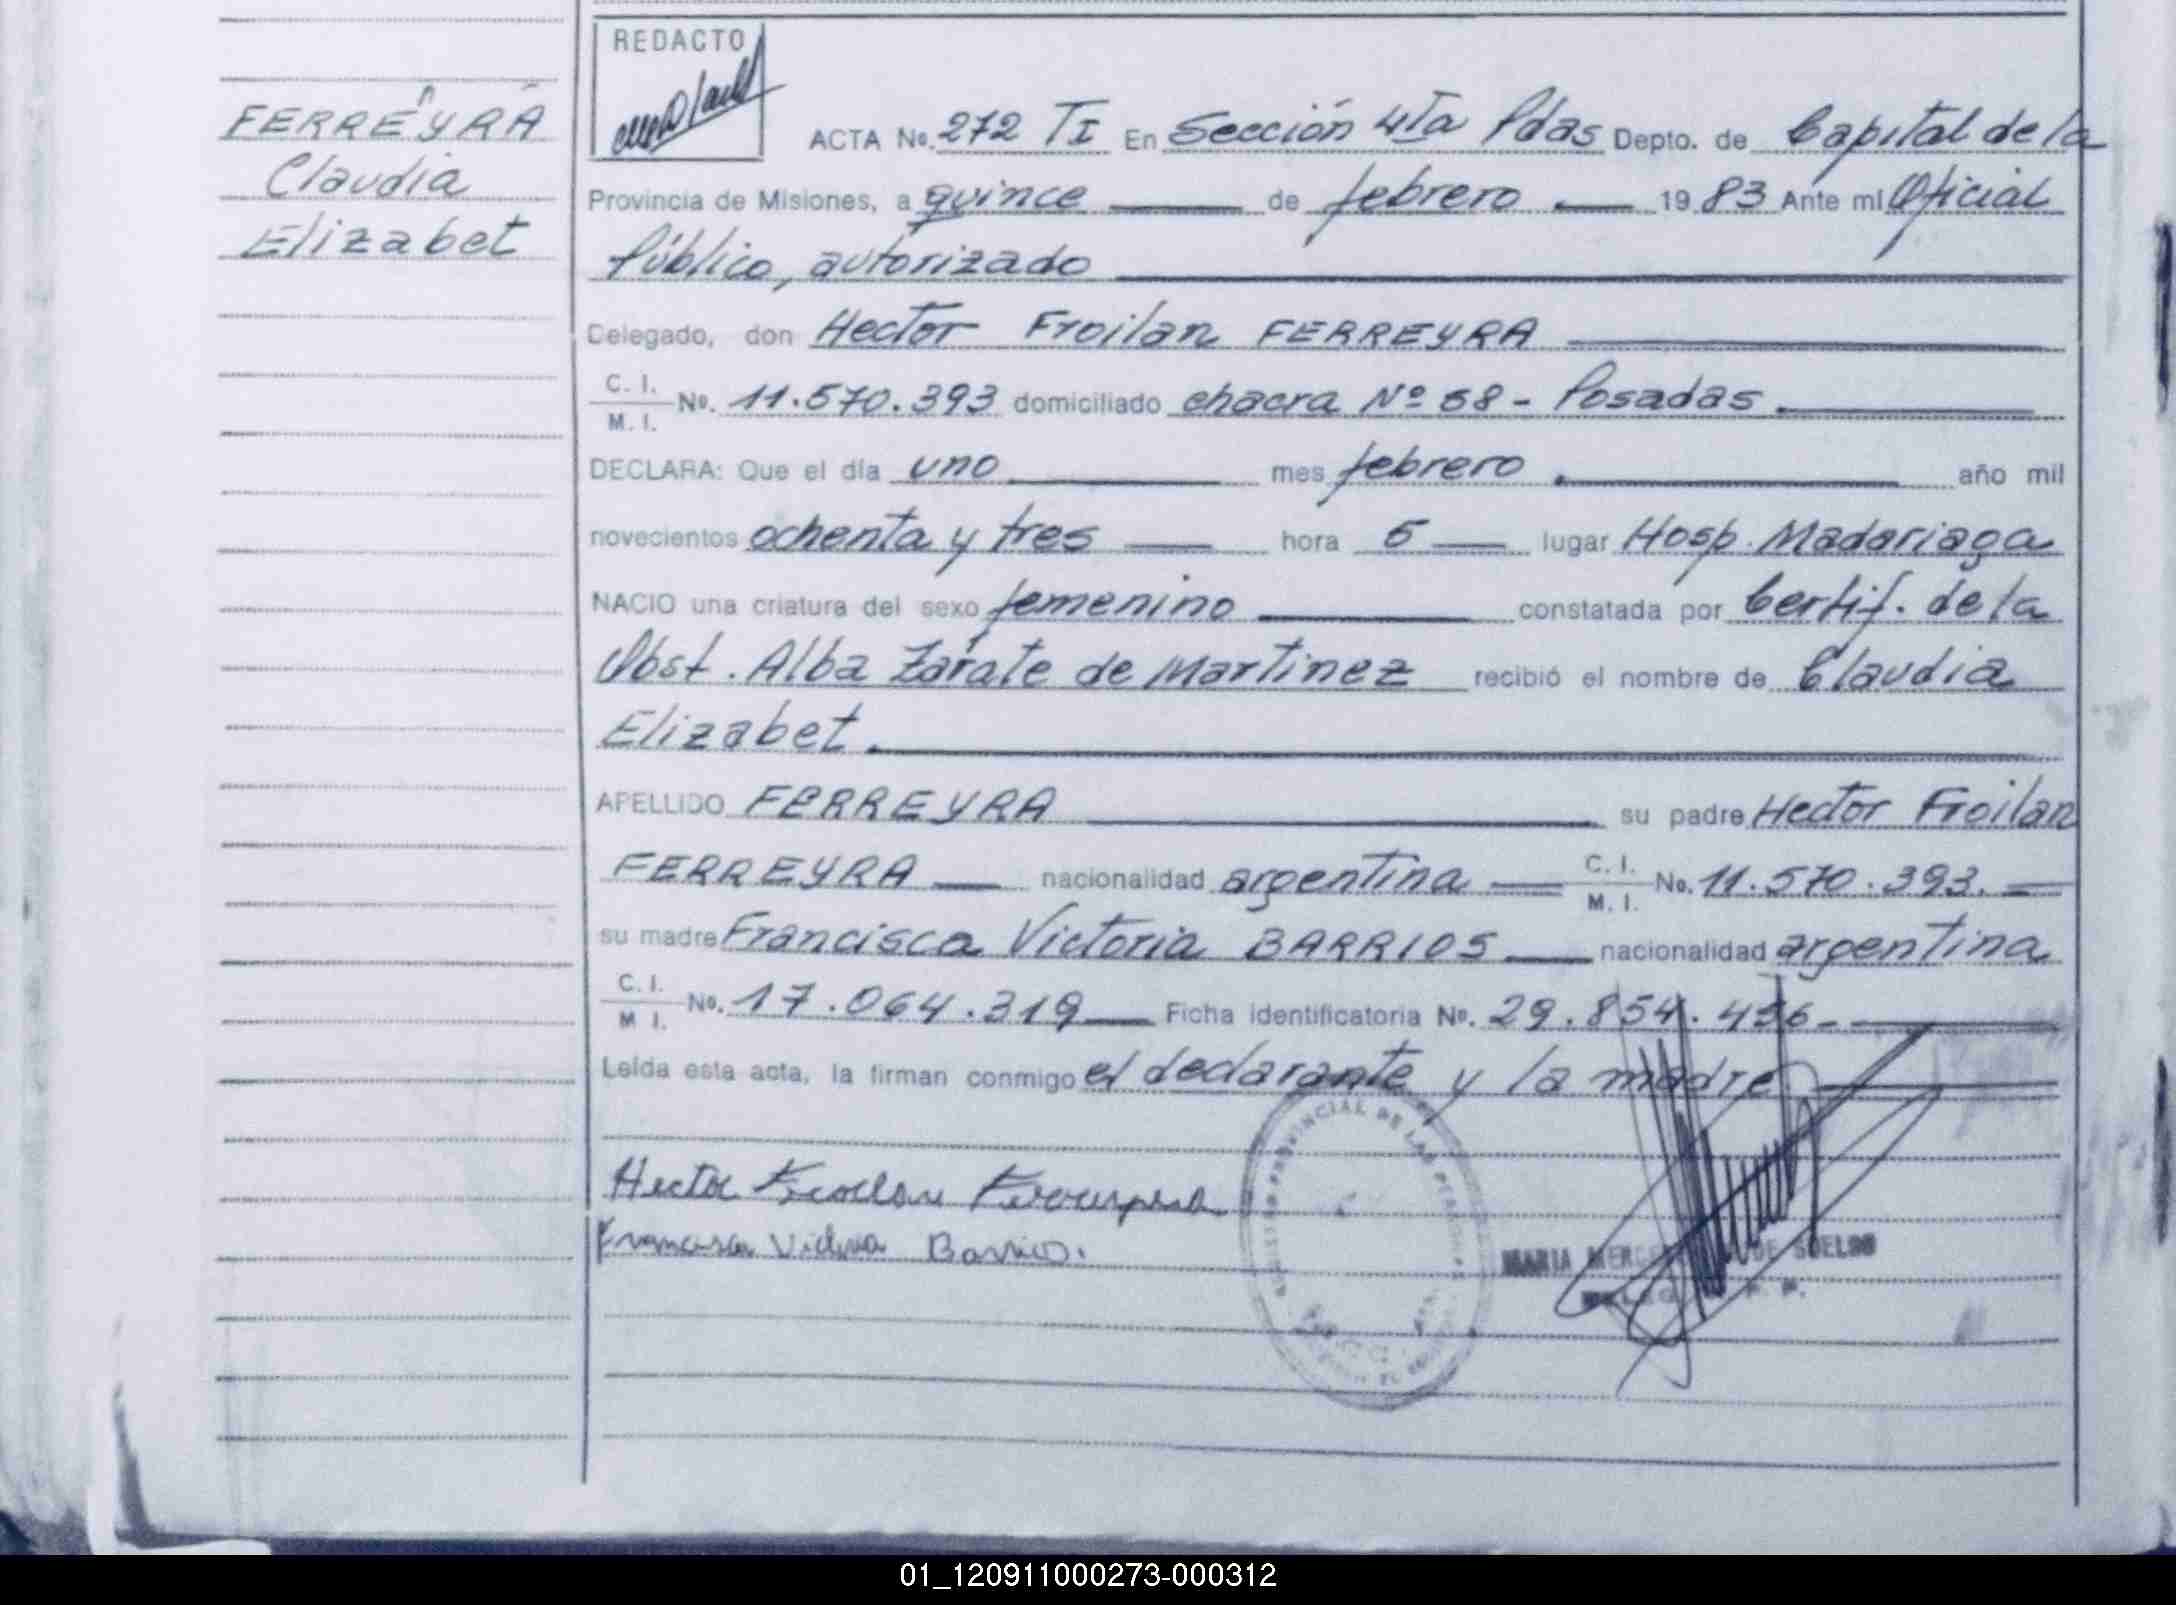 REDACTO
FERREYRA
Claudia
Elizabet
ACTA No. 272 TI En Sección 4Ta Pdas Depto. de Capital de la
Provincia de Misiones, a quince de febrero 1983 Ante mi Oficial
Público, autorizado
Delegado, don Hector Froilan FERREYRA
C. I.
M. I. No. 11.570.393 domiciliado chacra Nº 68 - Posadas
DECLARA: Que el día uno mes febrero año mil
novecientos ochenta y tres hora 5 lugar Hosp. Madariaga
NACIO una criatura del sexo femenino constatada por Certif. de la
Obst. Alba Zarate de Martinez recibió el nombre de Claudia
Elizabet.
APELLIDO FERREYRA su padre Hector Froilan
FERREYRA nacionalidad argentina C. I. M. I. No. 11.570.393.
su madre Francisca Victoria BARRIOS nacionalidad argentina
C. I.
M I. No. 17.064.319 Ficha identificatoria No. 29.854.436-
Leída esta acta, la firman conmigo el declarante y la madre
PROVINCIAL DE LAS PERSONAS
Hector Froilan Ferreyra
Francisca Victoria Barrios.
MARIA DE SUELDO
01_120911000273-000312